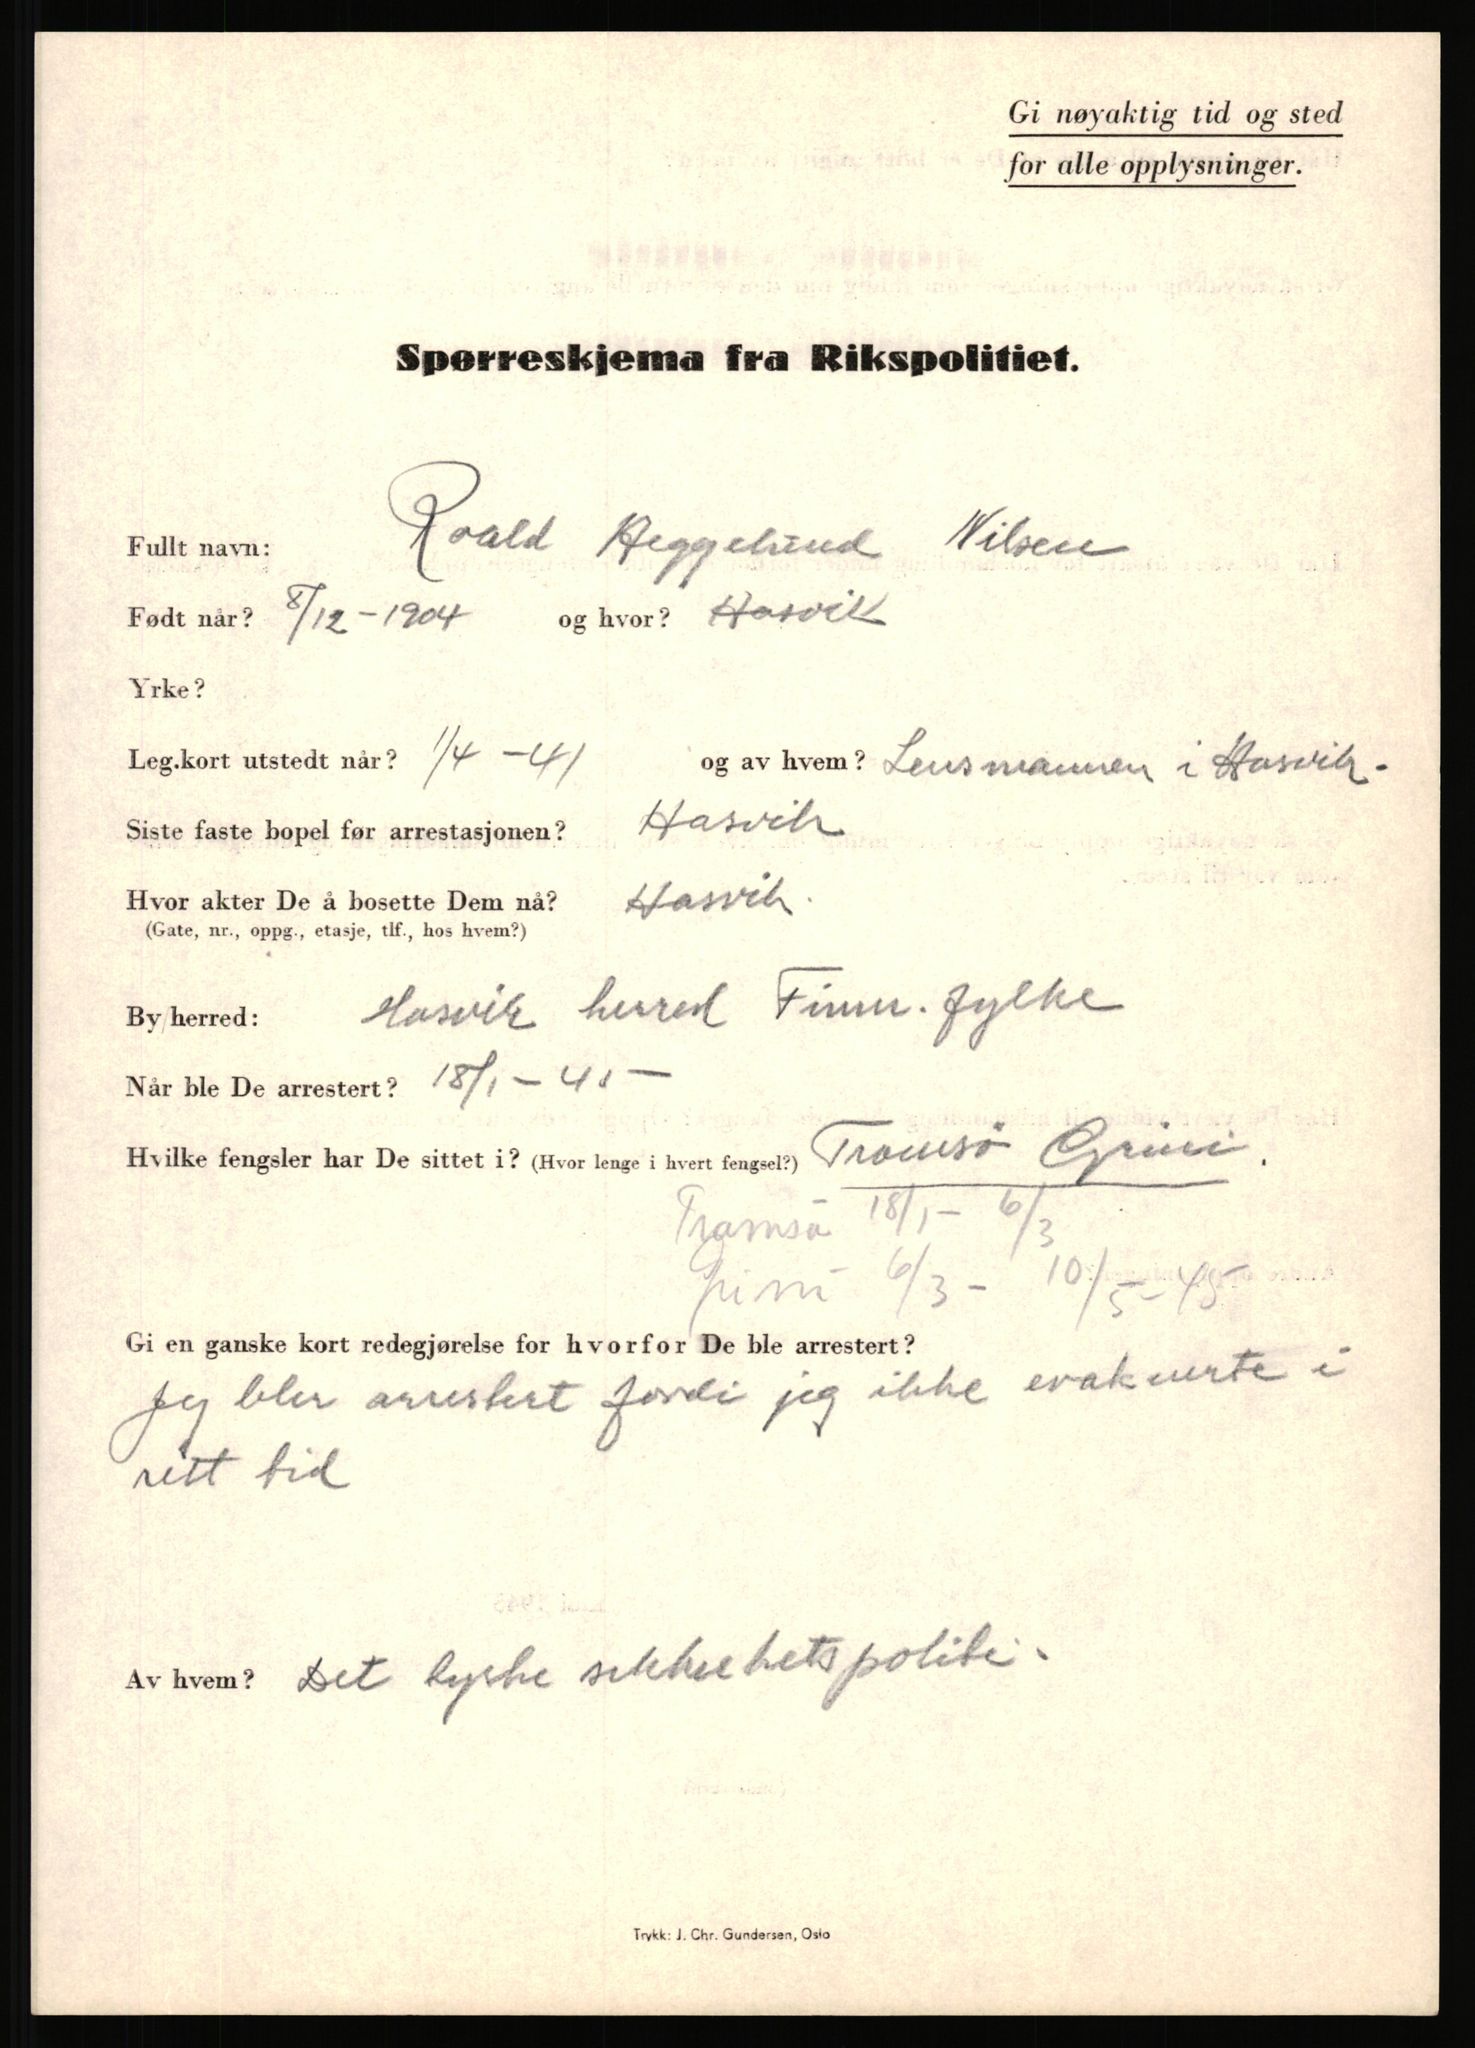 Gi nøyaktig tid og sted
for alle opplysninger.
Spørreskjema fra Rikspolitiet.
Fullt navn: Roald Heggelund Nilsen
Født når? 8/12-1904 og hvor? Hasvik
Yrke?
Leg.kort utstedt når? 1/4-41 og av hvem? Lensmannen i Hasvik.
Siste faste bopel før arrestasjonen? Hasvik
Hvor akter De å bosette Dem nå? Hasvik.
(Gate, nr., oppg., etasje, tlf., hos hvem?)
By/herred: Hasvik herred Finm. fylke
Når ble De arrestert? 18/1-45-
Hvilke fengsler har De sittet i? (Hvor lenge i hvert fengsel?) Tromsö Grini.
Tromsö 18/1- 6/3
Grini 6/3- 10/5-45
Gi en ganske kort redegjørelse for hvorfor De ble arrestert?
Jeg blev arrestert fordi jeg ikke evakuerte i
rett tid
Av hvem? Det tyske sikkerhetspoliti.
Trykk: J. Chr. Gundersen, Oslo